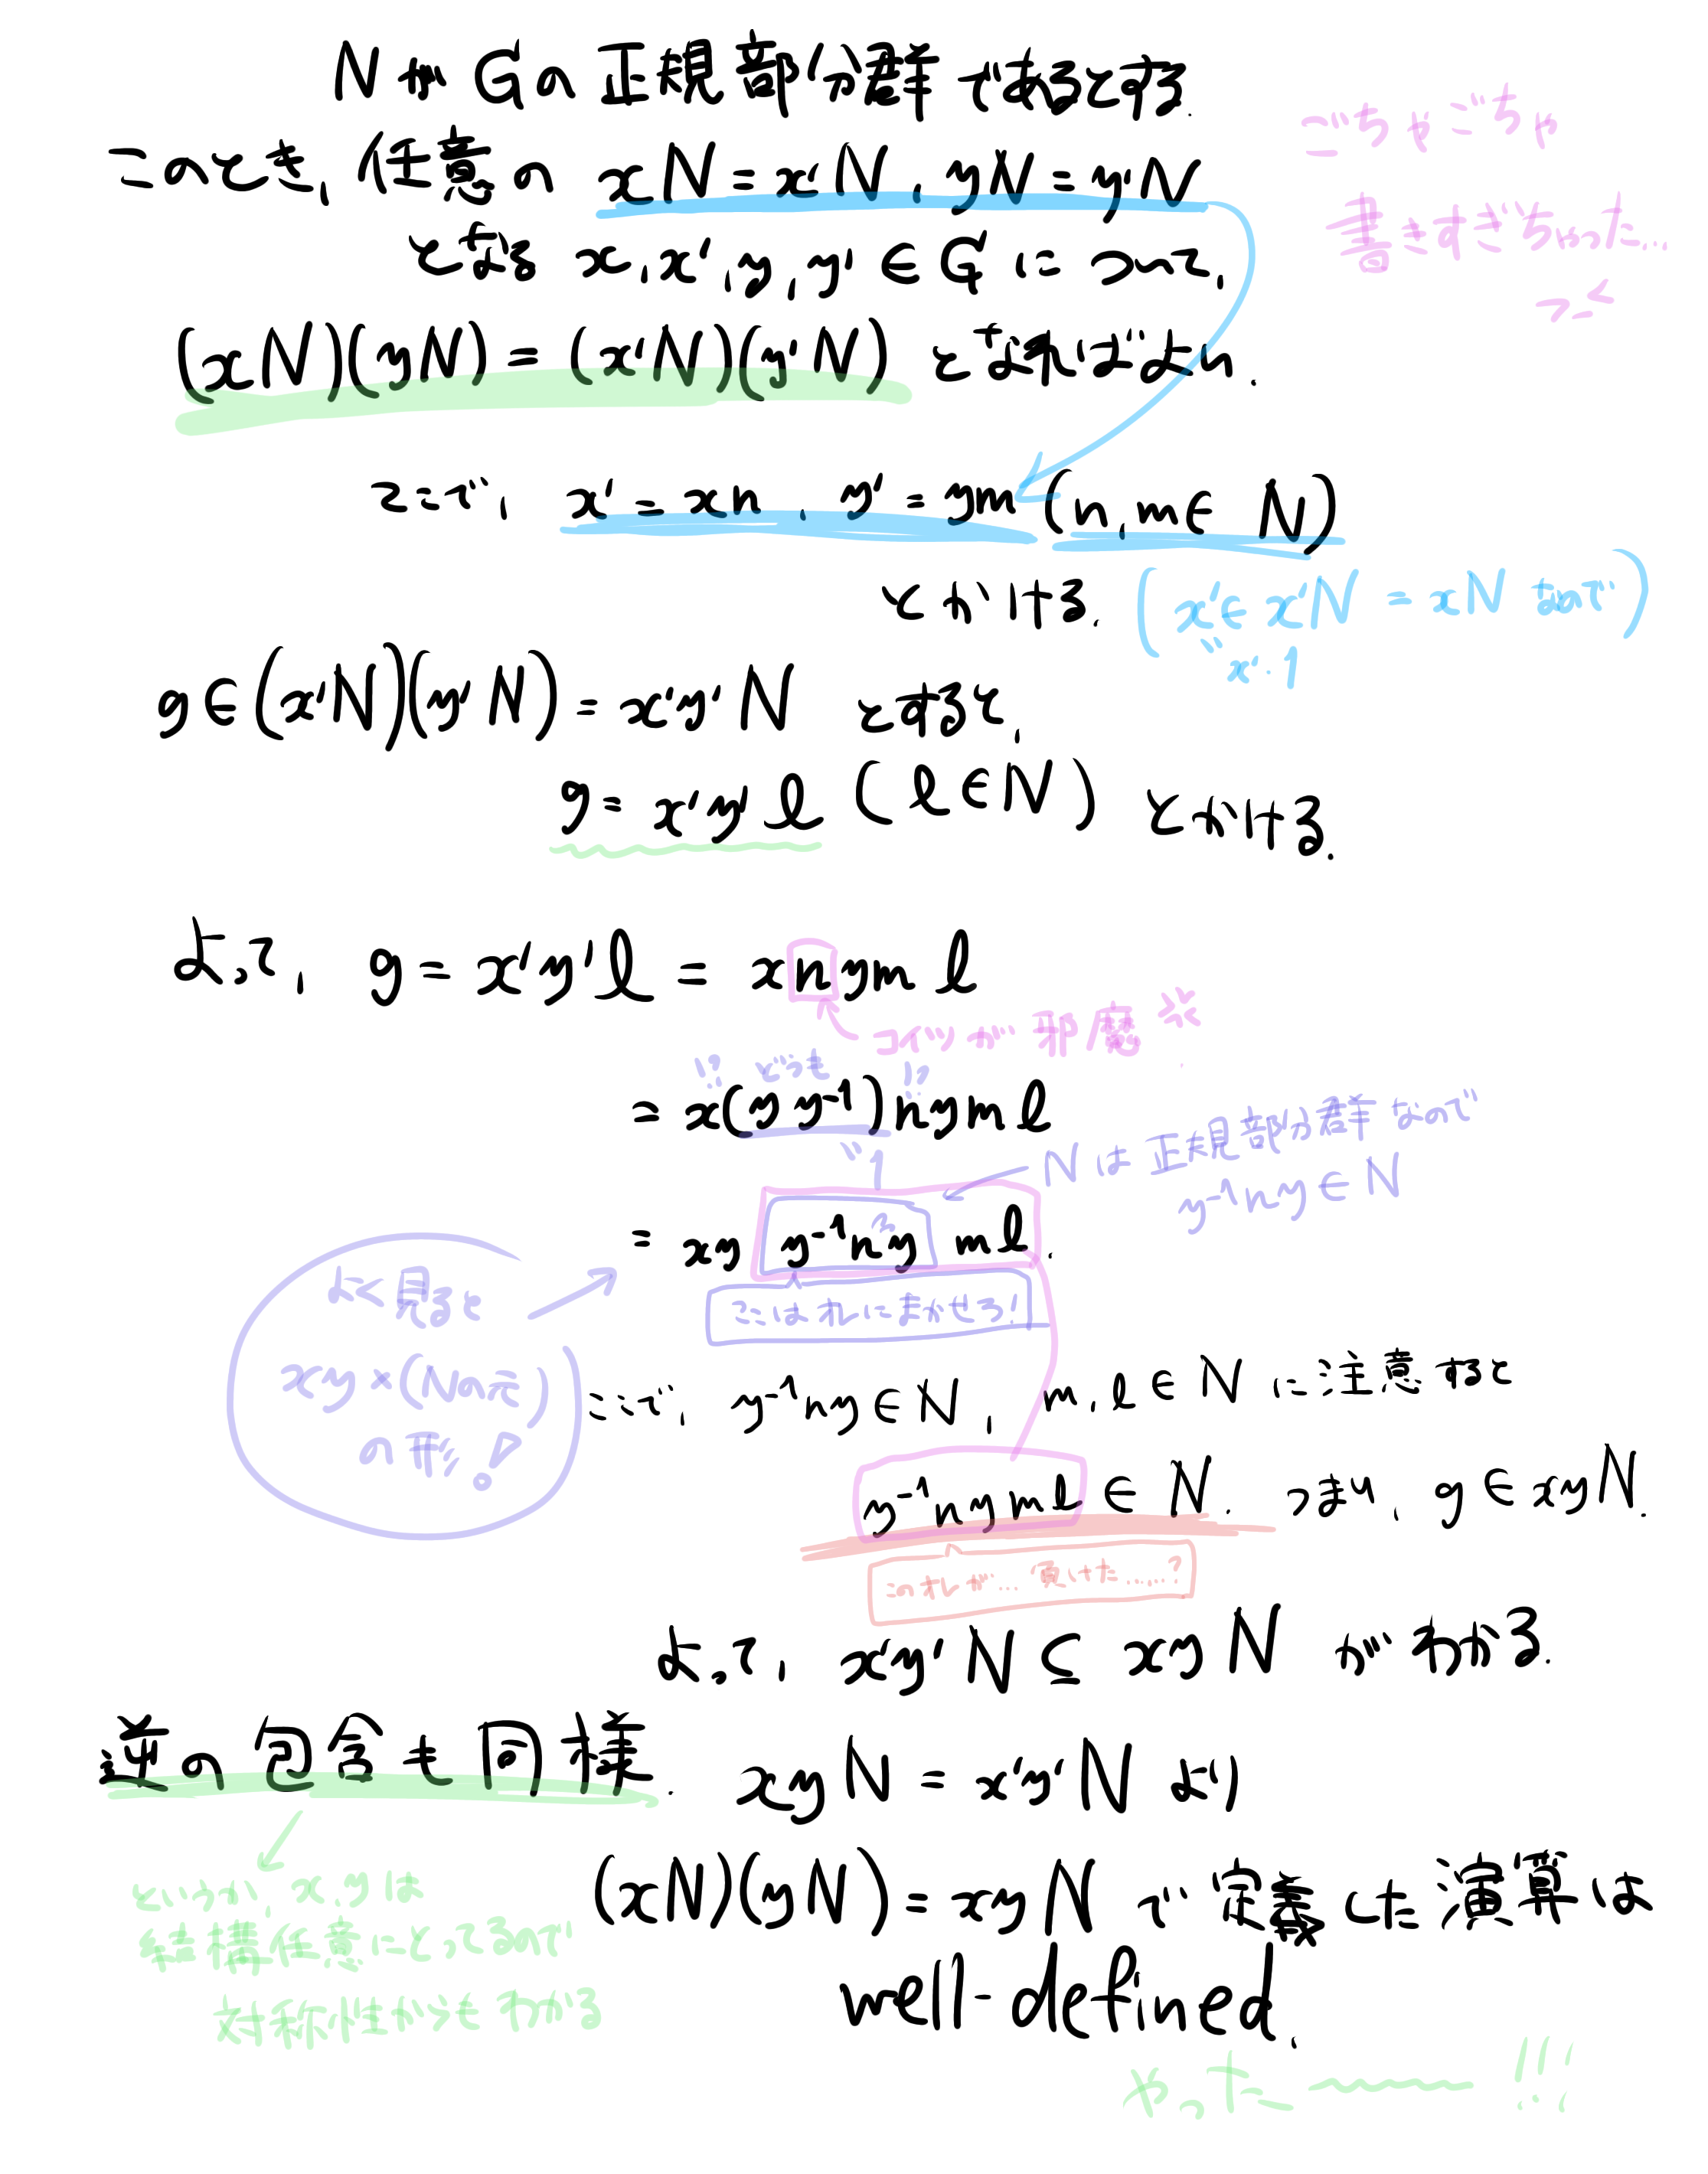 NがGの正規部分群であるとする.
ごちゃごちゃ
書きすぎちゃった…
このとき, 任意の xN = x'N, yN = y'N
となる x, x', y, y' ∈ G について,
(xN)(yN) = (x'N)(y'N) となればよい.
ここで, x' = xn, y' = ym (n, m ∈ N)
とかける. (x' ∈ x'N = xN なので)
x'・1
g ∈ (x'N)(y'N) = x'y'N とすると,
g = x'y'l (l ∈ N) とかける.
よって, g = x'y'l = xnyml
コイツが邪魔
!? どうも !?
= x(yy⁻¹)nyml
1
Nは正規部分群なので
y⁻¹ny ∈ N
= xy y⁻¹ny ml.
ここはオレにまかせろ!
よく見ると
xy×(Nの元)
の形!
ここで, y⁻¹ny ∈ N, m, l ∈ N に注意すると
y⁻¹nyml ∈ N. つまり, g ∈ xyN.
このオレが… 負けた……?
よって, x'y'N ⊆ xyN がわかる.
逆の包含も同様. xyN = x'y'N より
というか, x, yは
結構任意にとってるので
対称性からもわかる
(xN)(yN) = xyN で定義した演算は
well-defined.
やったー〜〜〜!!!